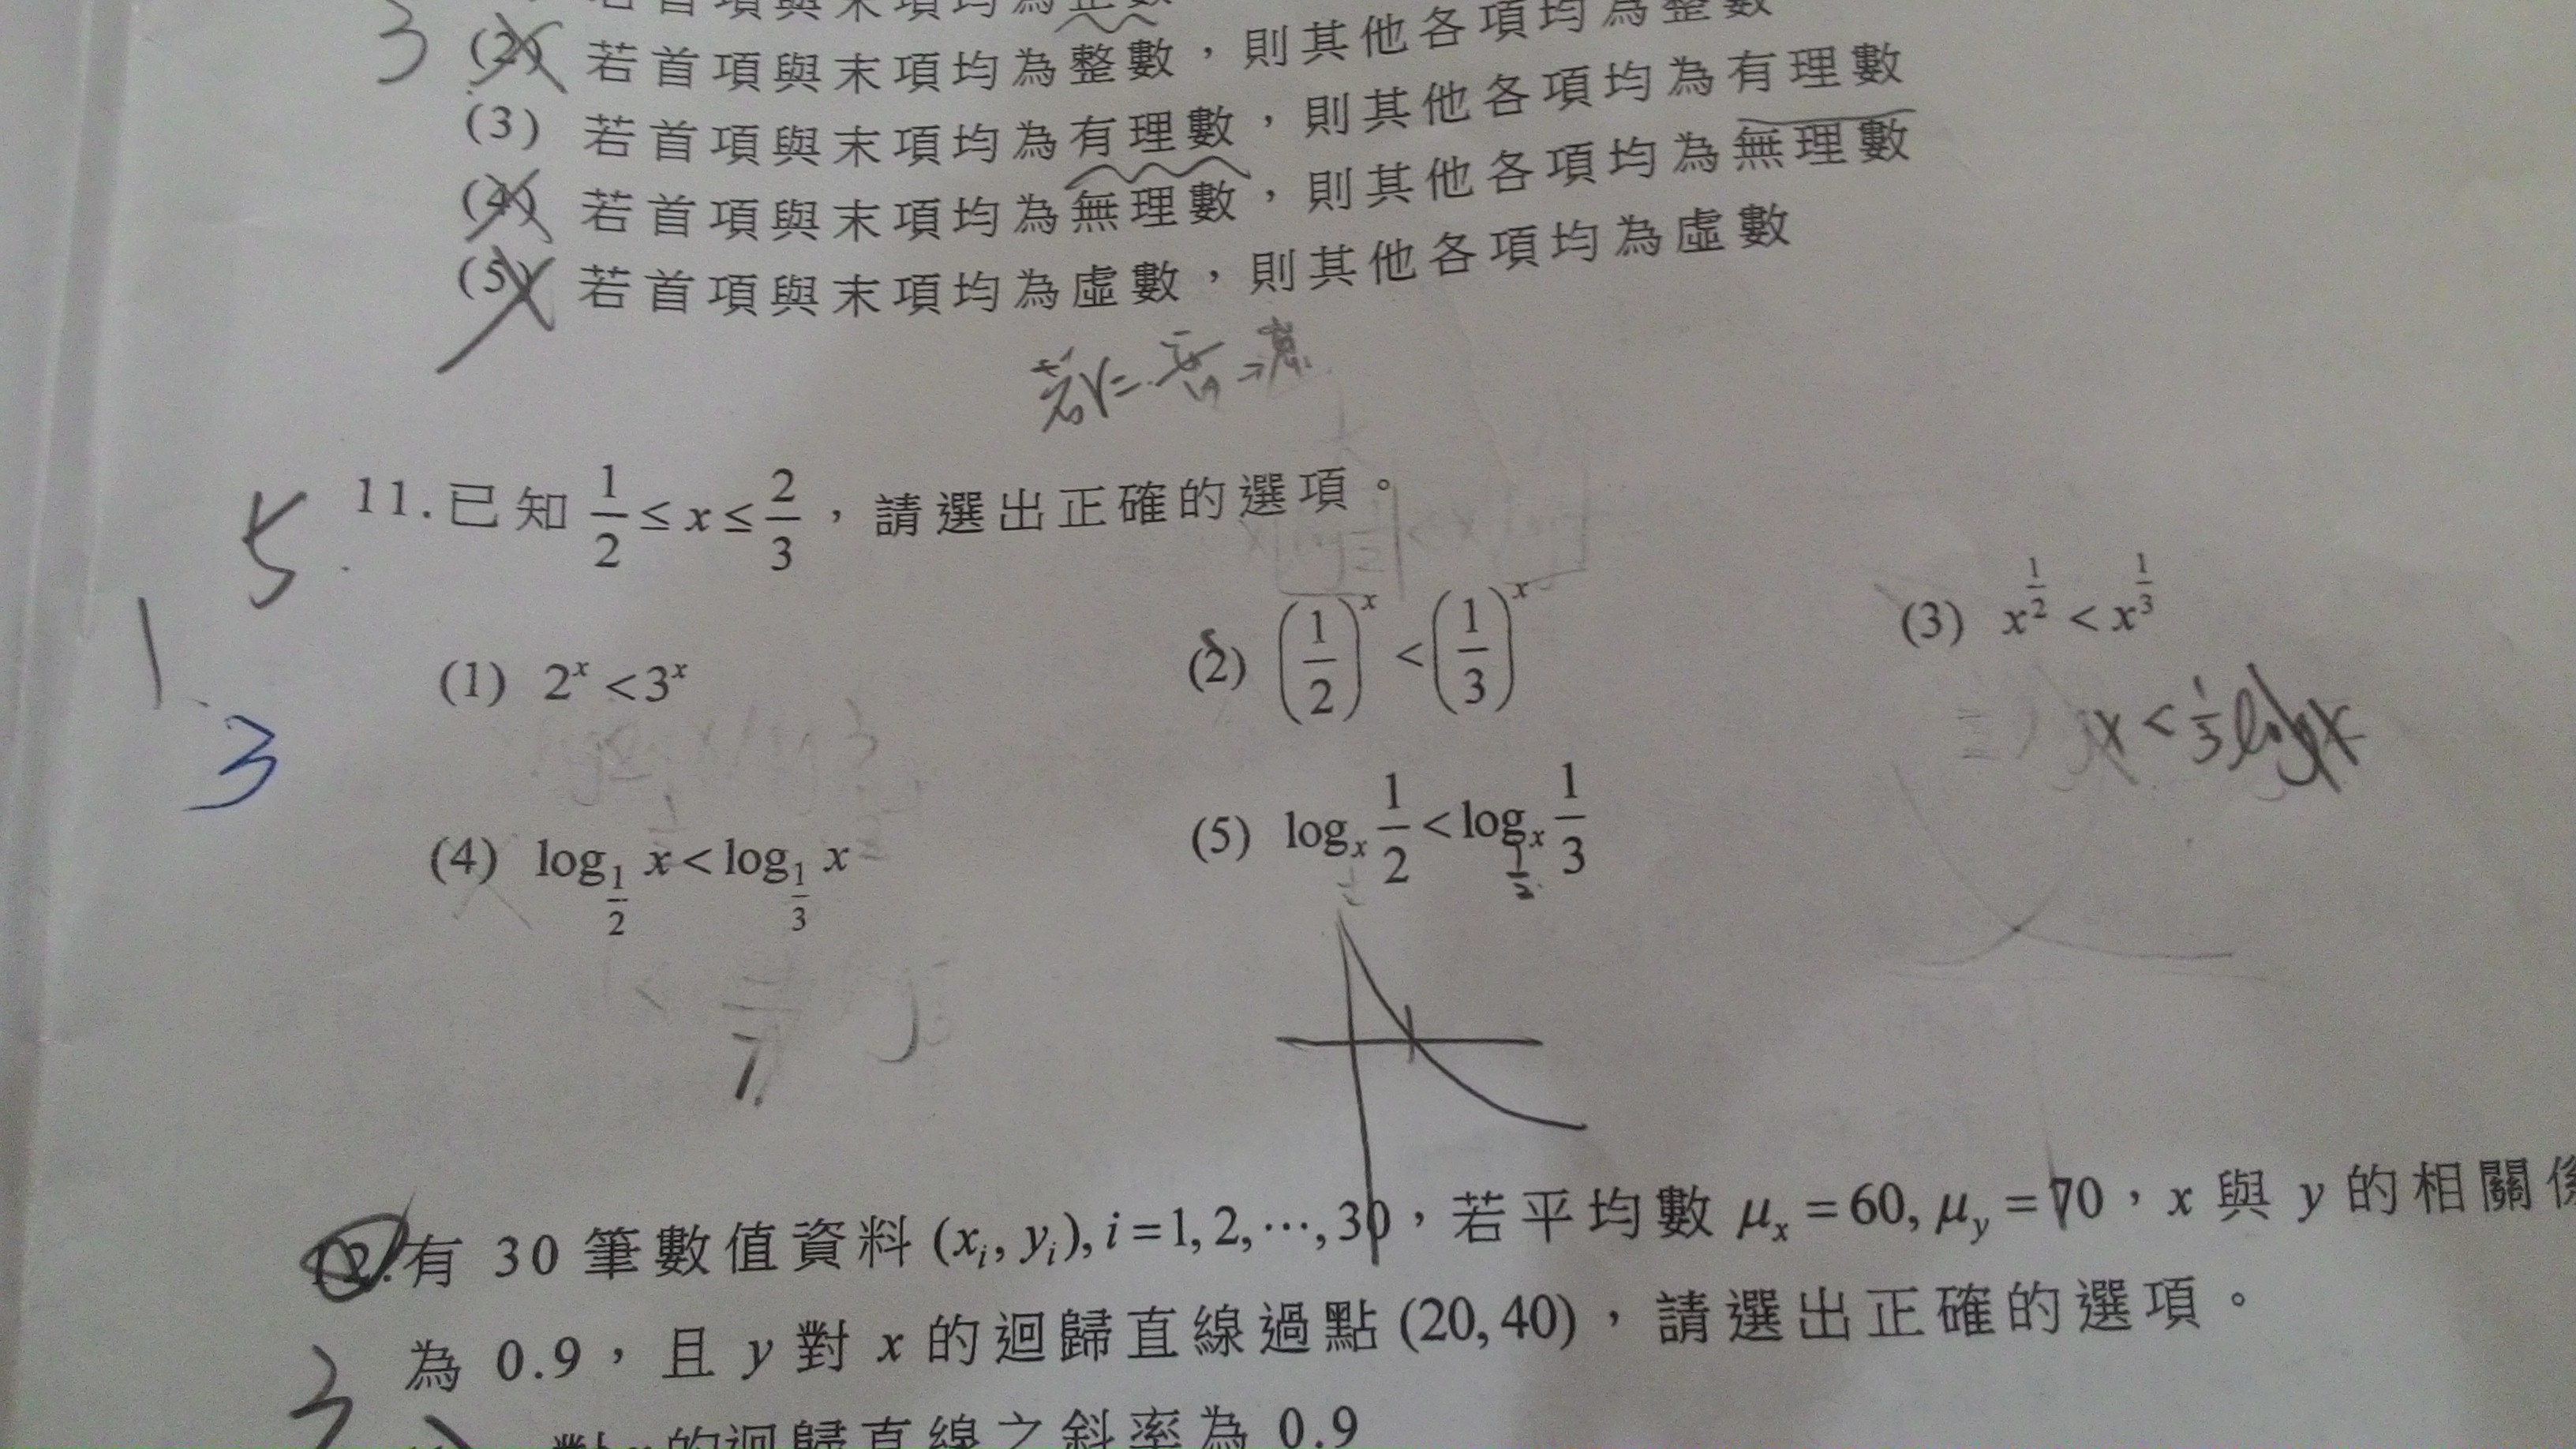 若首項與末項均為正數
3 (2) 若首項與末項均為整數，則其他各項均為整數
(3) 若首項與末項均為有理數，則其他各項均為有理數
(4) 若首項與末項均為無理數，則其他各項均為無理數
(5) 若首項與末項均為虛數，則其他各項均為虛數
5 11.已知 1/2 ≤ x ≤ 2/3，請選出正確的選項。
1
3
(1) 2^x < 3^x (2) (1/2)^x < (1/3)^x (3) x^(1/2) < x^(1/3)
x < 1/3 log x
(4) log_(1/2) x < log_(1/3) x (5) log_x 1/2 < log_x 1/3
1/2
12.有 30 筆數值資料 (x_i, y_i), i = 1, 2, ⋯, 30，若平均數 μ_x = 60, μ_y = 70，x 與 y 的相關係
為 0.9，且 y 對 x 的迴歸直線過點 (20, 40)，請選出正確的選項。
3
對 x 的迴歸直線之斜率為 0.9